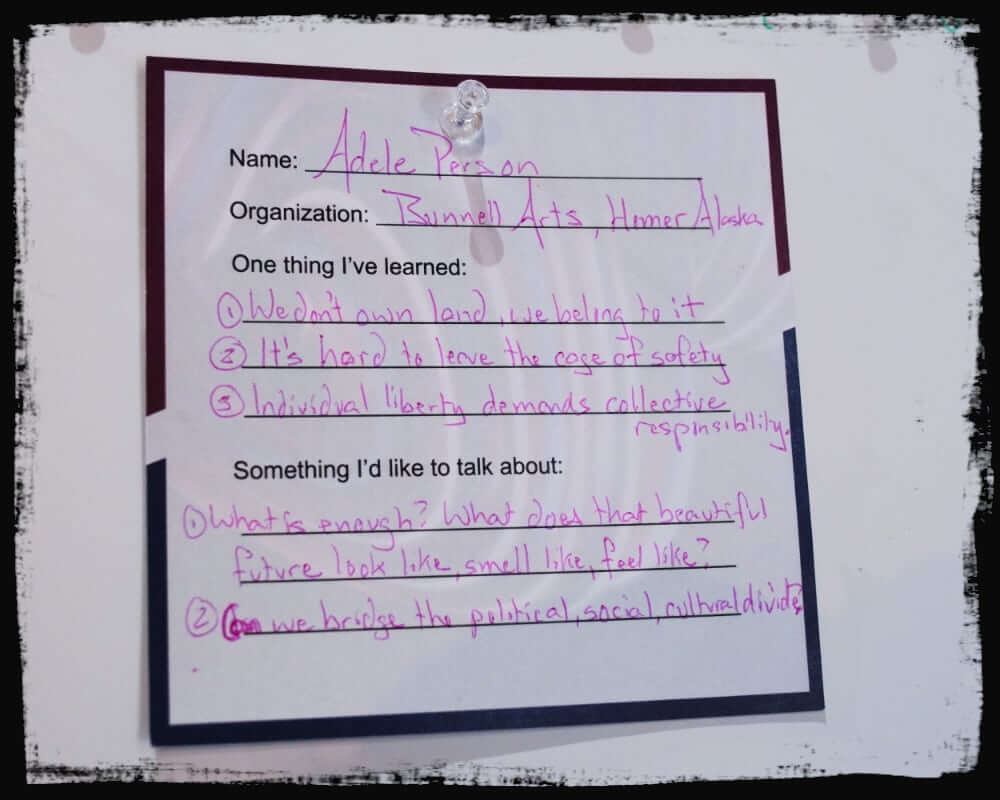 Name: Adele Person
Organization: Bunnell Arts, Homer Alaska
One thing I've learned:
① We don't own land, we belong to it
② It's hard to leave the cage of safety
③ Individual liberty demands collective
responsibility.
Something I'd like to talk about:
① What is enough? What does that beautiful
future look like, smell like, feel like?
② Can we bridge the political, social, cultural divide?